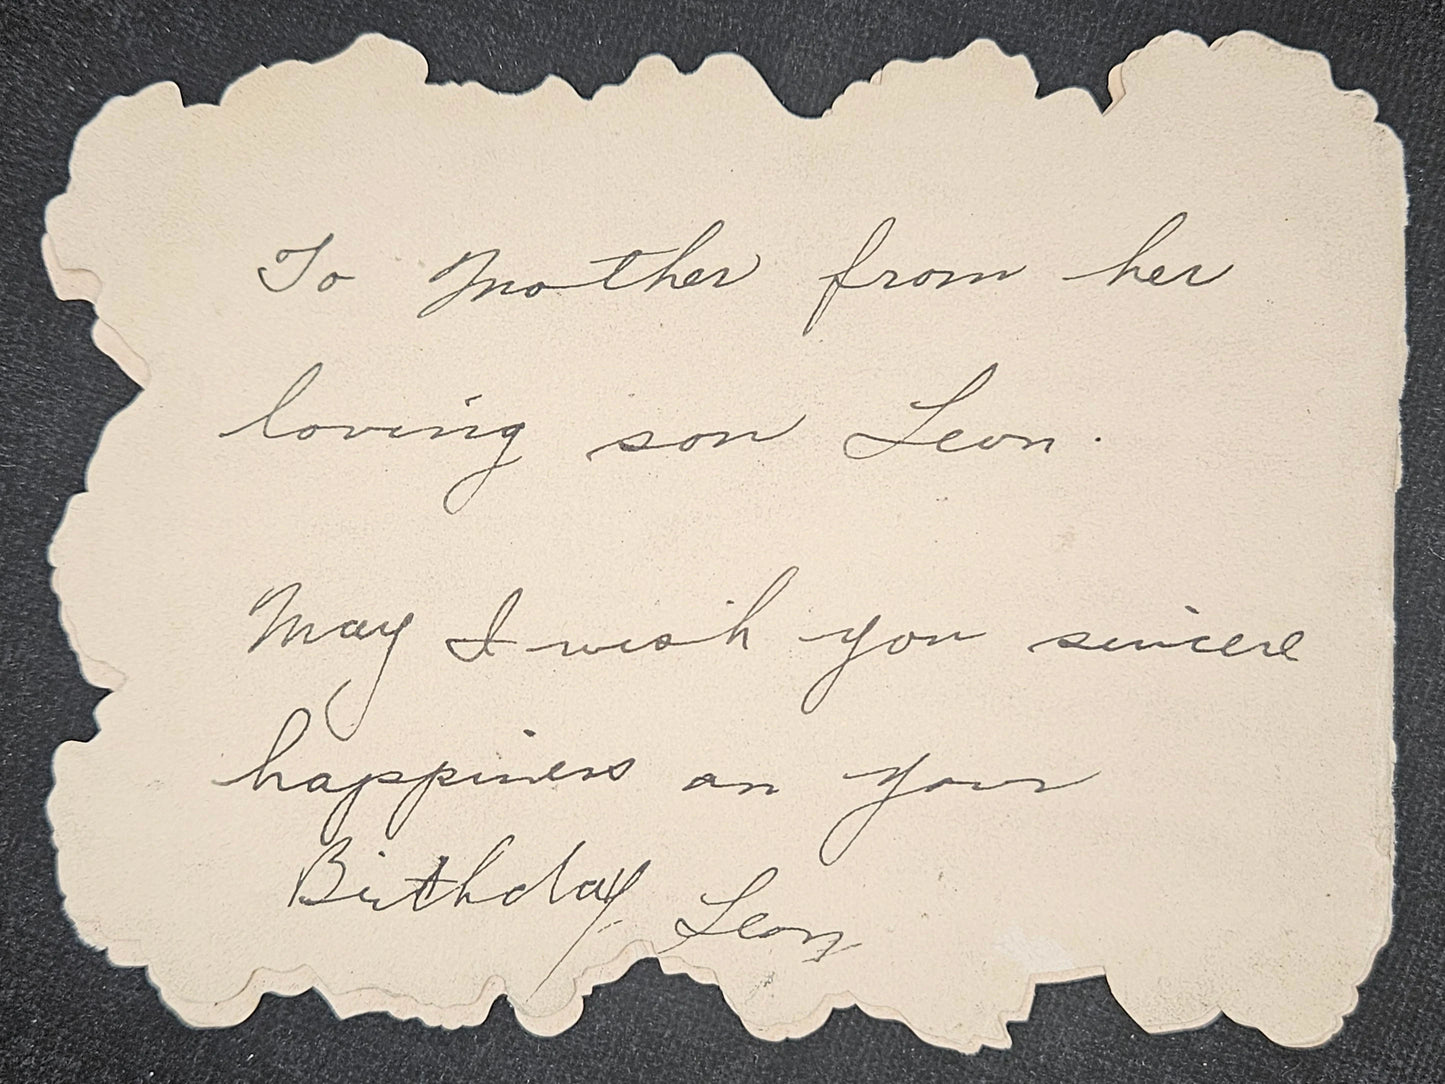 To Mother from her
loving son Leon.
May I wish you sincere
happiness on your
Birthday Leon